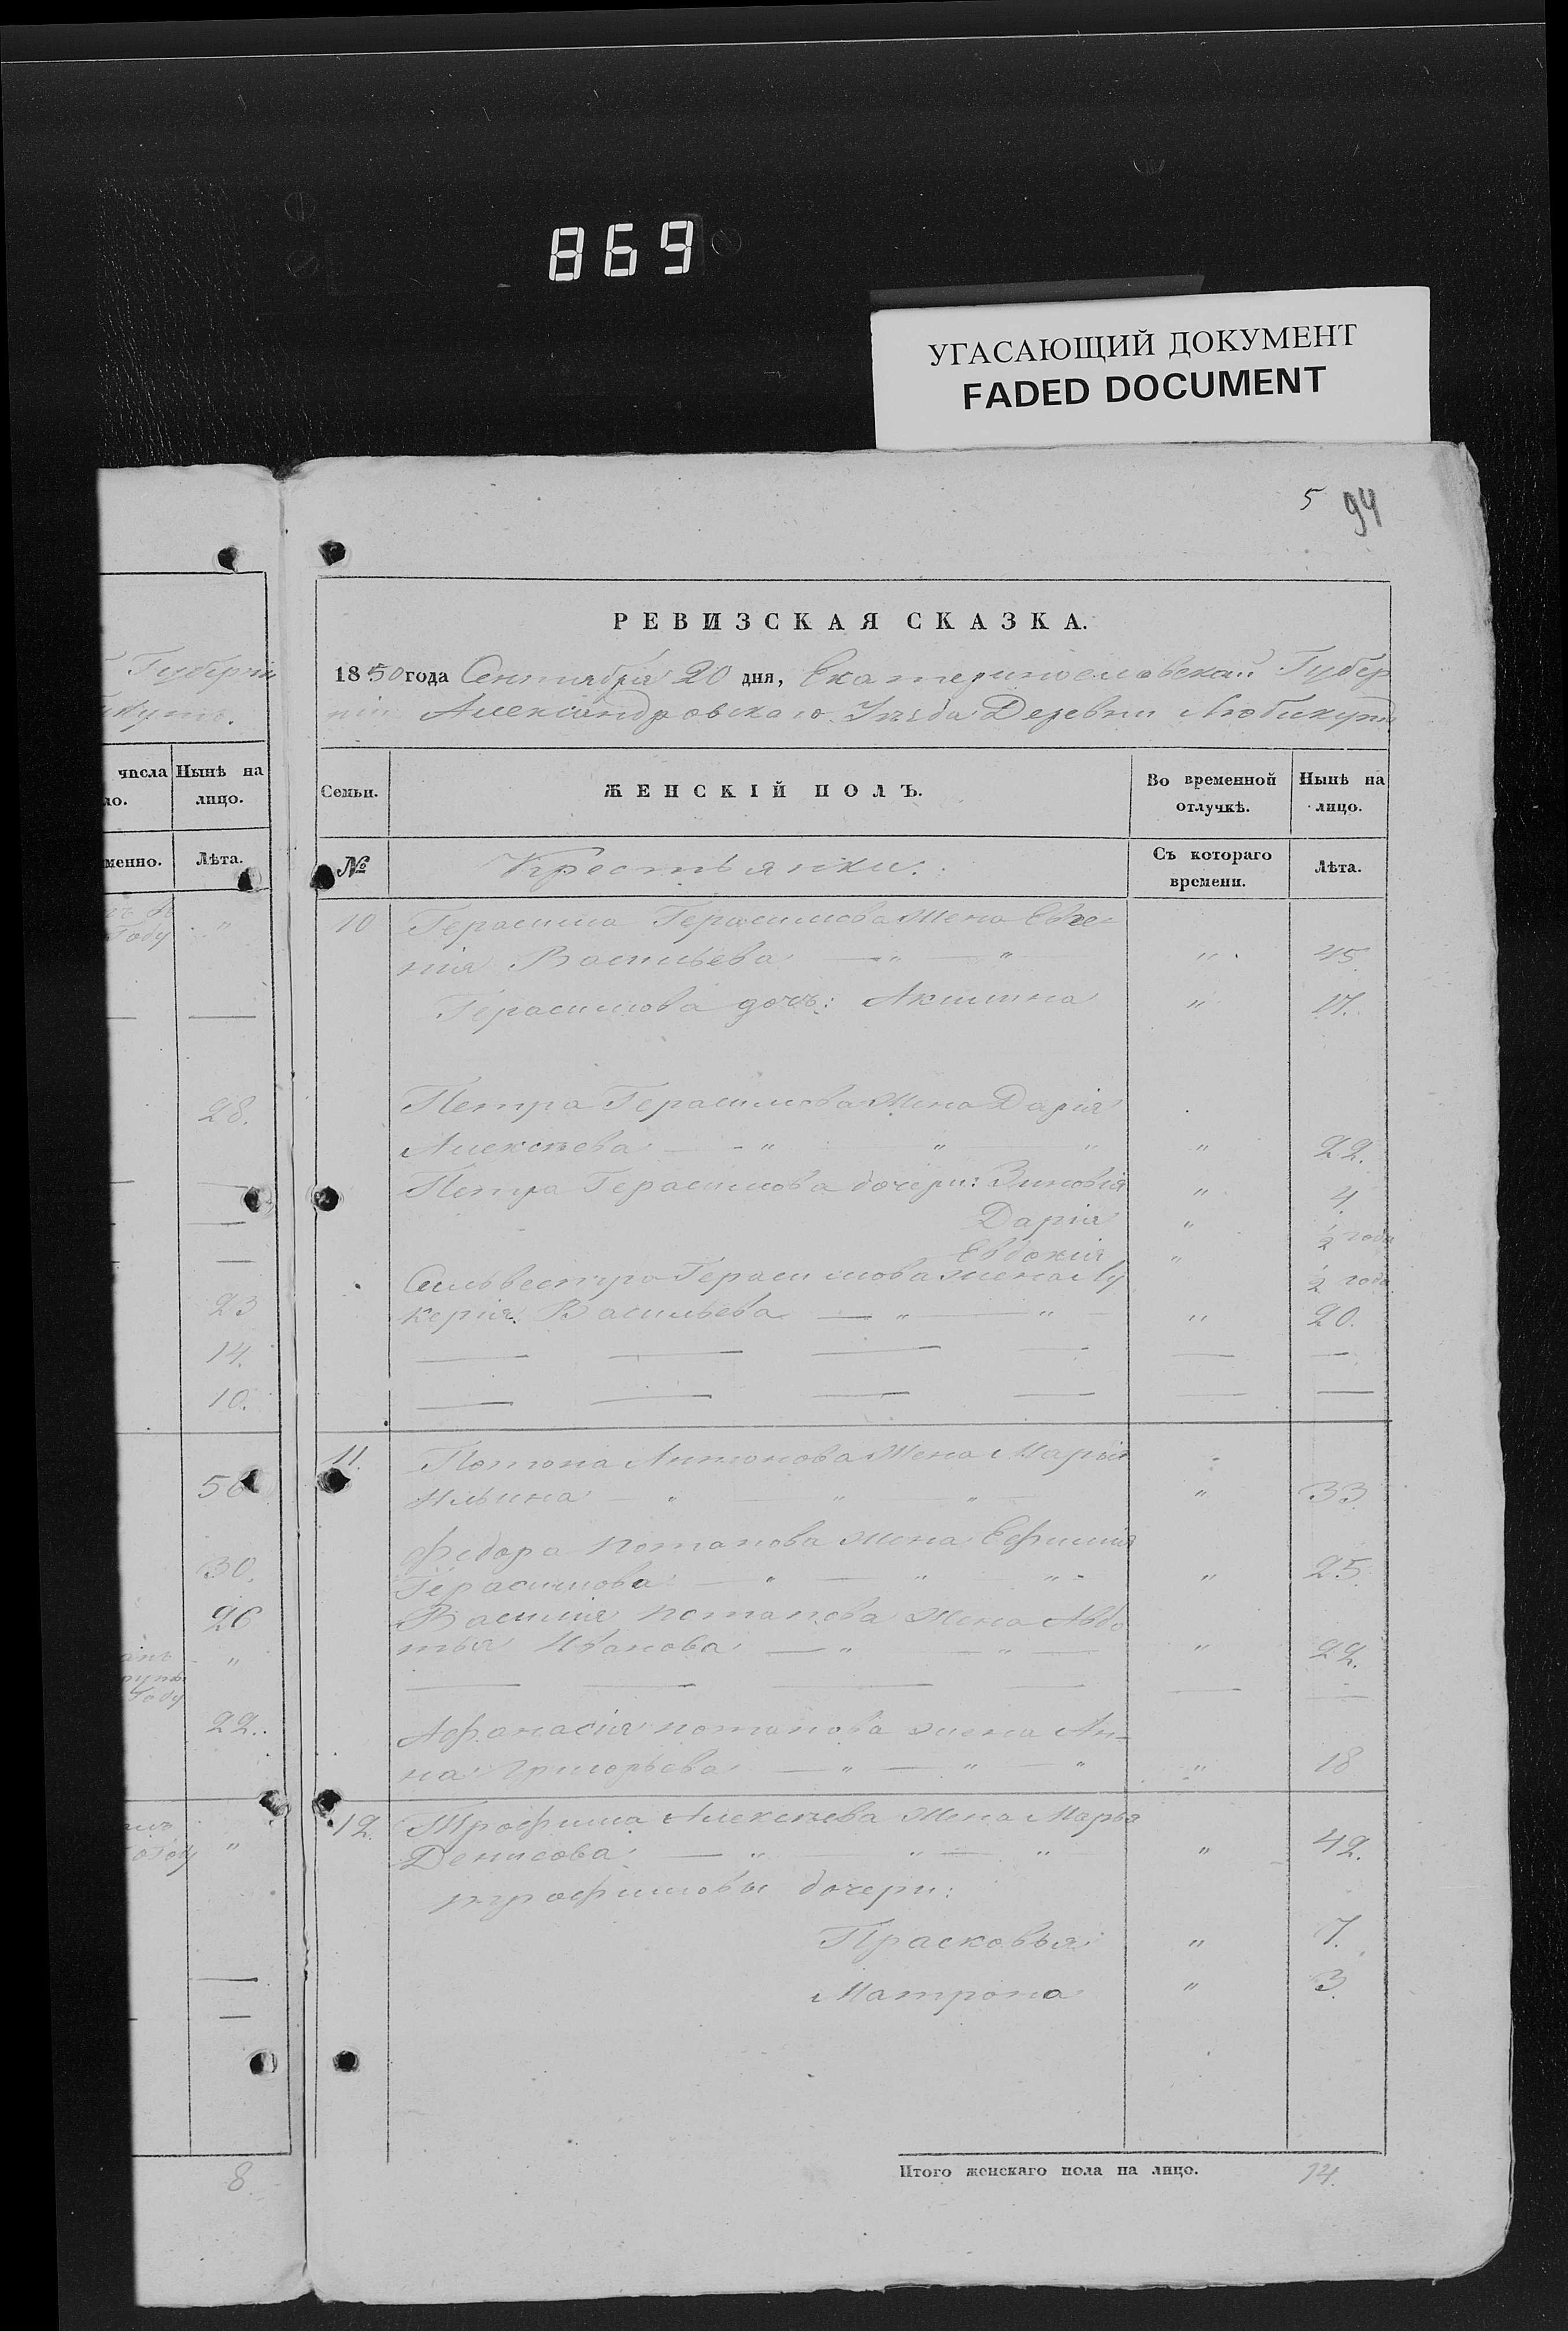 869
УГАСАЮЩИЙ ДОКУМЕНТ
FADED DOCUMENT
5 94
Губерніи
числа Нынѣ на
лицо.
Лѣта.
Году "
28.
23
14.
10.
30.
26
"
Году
22.
"
8
РЕВИЗСКАЯ СКАЗКА.
1850 года Сентября 20 дня, Екатеринославской Губер
ніи Александровскаго Уѣзда Деревни Любикутъ
Семьи. ЖЕНСКІЙ ПОЛЪ. Во временной отлучкѣ. Нынѣ на лицо.
№ Крестьянки. Съ котораго времени. Лѣта.
10 Герасима Герасимова Жена Евге-
нія Васильева — " — " " 45.
Герасимова дочь: Акилина " 17.
Петра Герасимова Жена Дарія
Алексѣева — " " " " 22.
Петра Герасимова дочери: Зиновія " 4.
Дарія " 1/2 года
Евдокія " 1/2 года
Сильвестра Герасимова жена Лу
керія Васильева — " — " — " 20.
11. Потапа Антонова Жена Марья
Ильина — " — " — " — " 33
Федора Потапова жена Ефимія
Герасимова — " — " — " " 25.
Василія Потапова жена Авдо
тья Иванова — " — " — " 22.
Афанасія Потапова жена Ан-
на Григорьева — " — " — " " 18
12. Трофима Алексѣева Жена Марья
Денисова — " — " — " " 42.
Трофимовы дочери:
Прасковья " 7.
Матрона " 3.
Итого женскаго пола на лицо. 14.